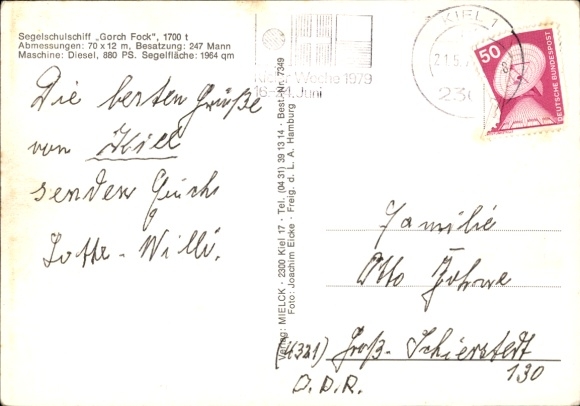 Segelschulschiff „Gorch Fock", 1700 t
Abmessungen: 70 x 12 m, Besatzung: 247 Mann
Maschine: Diesel, 880 PS. Segelfläche: 1964 qm
Die besten Grüße
von Kiel
senden Euch
Lotte - Willi.
Woche 1979
Juni
KIEL 1
21.5.
50
DEUTSCHE BUNDESPOST
Verlag: MIELCK · 2300 Kiel 17 · Tel. (04 31) 39 13 14 · Best.-Nr. 7349
Foto: Joachim Eicke · Freig. d. L. A. Hamburg
Familie
Otto
(4321) Groß-Schierstedt
130
D.D.R.